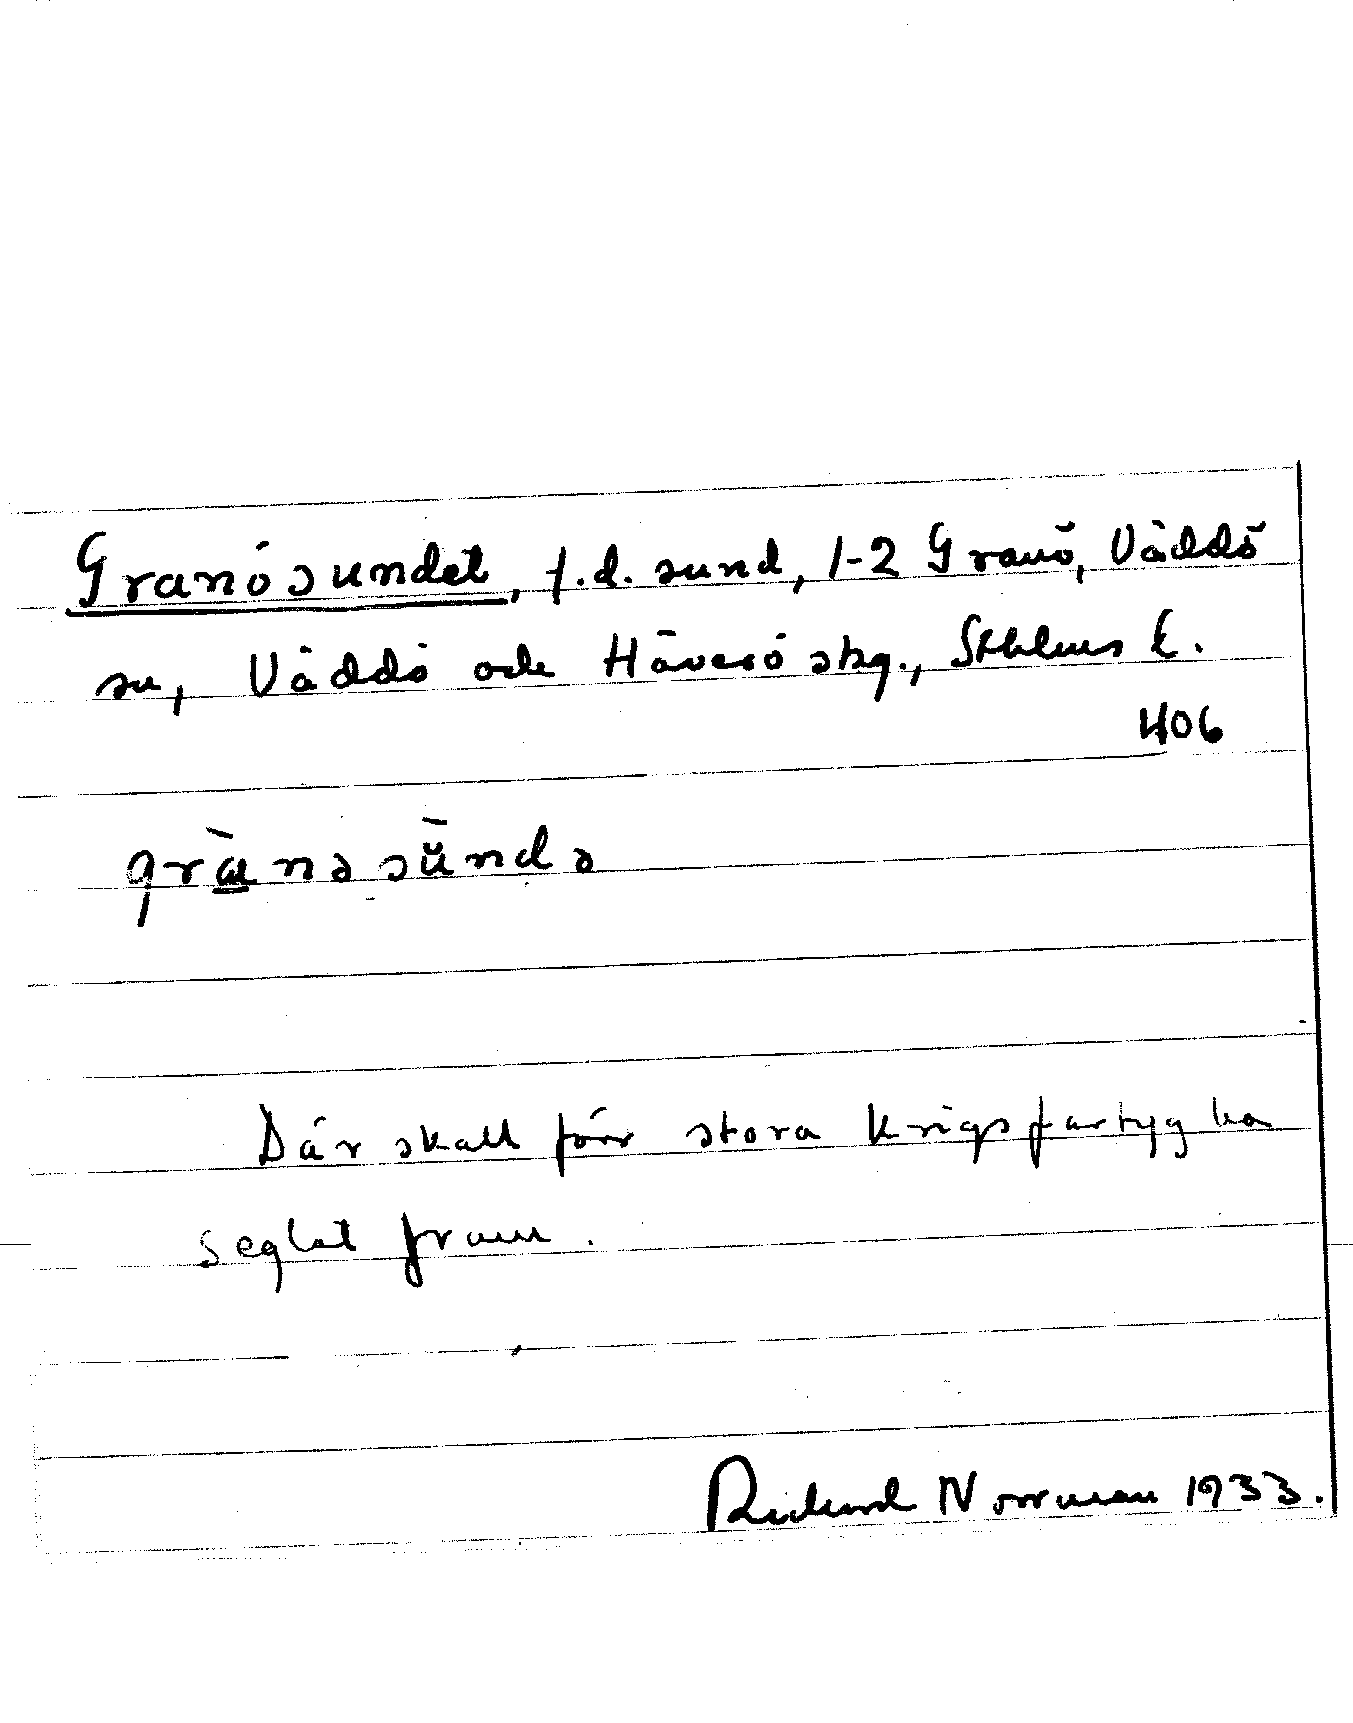 Granösundet, f.d. sund, 1-2 Granö, Väddö
sn, Väddö och Häverö skg., Sthlms l.
406
grɑ̀nəsùndə
Där skall förr stora krigsfartyg ha
seglat fram.
Rickard Norrman 1933.